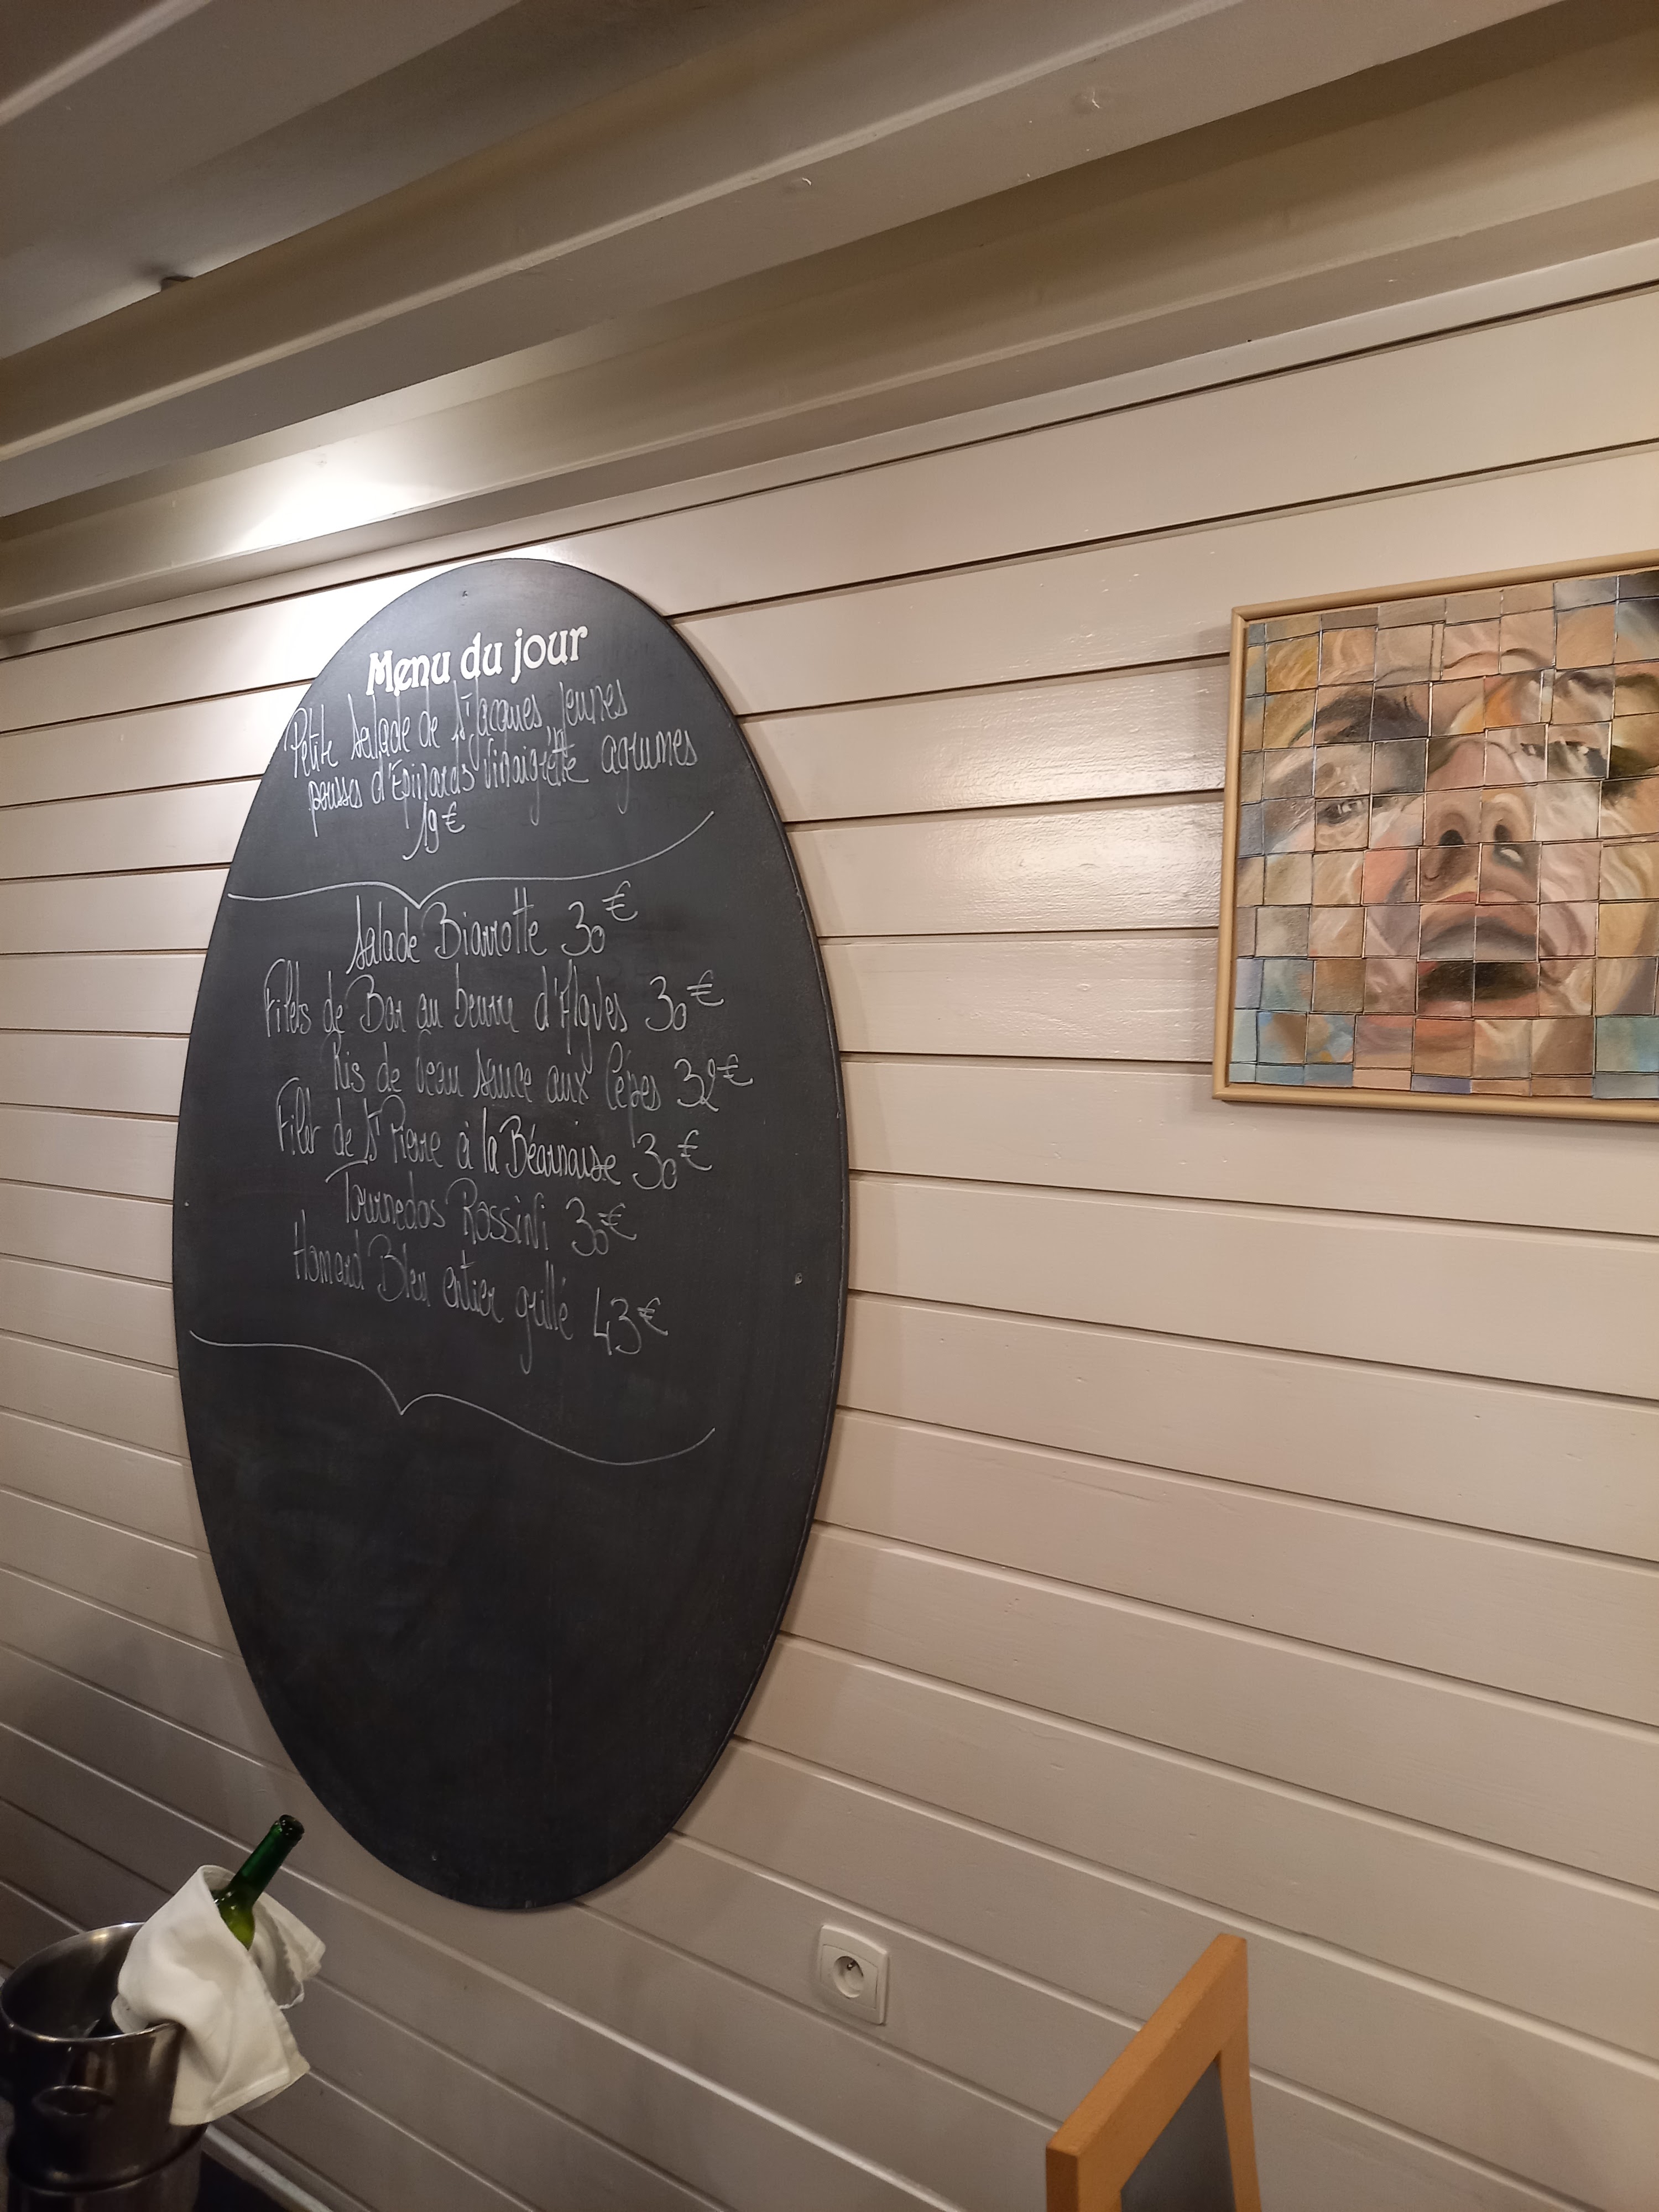 Menu du jour
Petite Salade de St Jacques Jeunes
pousses d'Épinards Vinaigrette agrumes
19€
Salade Biarrotte 30€
Filets de Bar au beurre d'Algues 30€
Ris de Veau sauce aux Cépes 32€
Filet de St Pierre à la Béarnaise 30€
Tournedos Rossini 30€
Homard Bleu entier grillé 43€